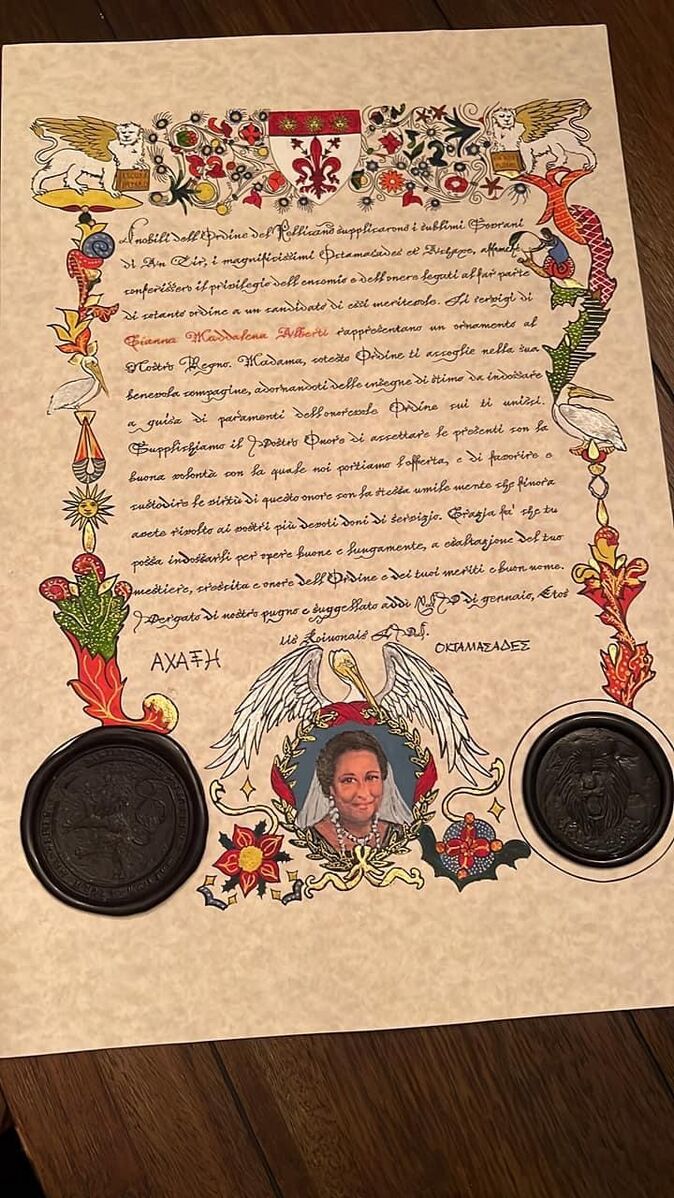 I nobili dell'Ordine del Pellicano supplicarono i sublimi Sovrani
di An Tir, i magnificissimi Octamasades et Achaxe, affinché
conferissero il privilegio dell'encomio e dell'onere legati al far parte
di cotanto ordine a un candidato di essi meritevole. Li servigi di
Gianna Maddalena Alberti rappresentano un ornamento al
Nostro Regno. Madama, cotesto Ordine ti accoglie nella sua
benevola compagine, adornandoti delle insegne di stima da indossare
a guisa di paramenti dell'onorevole Ordine cui ti unisci.
Supplichiamo il Vostro Onore di accettare le presenti con la
buona volontà con la quale noi portiamo l'offerta, e di favorire e
custodire le virtù di questo onore con la stessa umile mente che finora
avete rivolto ai vostri più devoti doni di servizio. Grazia fa' che tu
possa indossarli per opere buone e lungamente, a esaltazione del tuo
mestiere, crescita e onore dell'Ordine e dei tuoi meriti e buon nome.
Vergato di nostro pugno e suggellato addì di gennaio, Etos
ΑΧΑΞΗ
ΟΚΤΑΜΑΣΑΔΕΣ